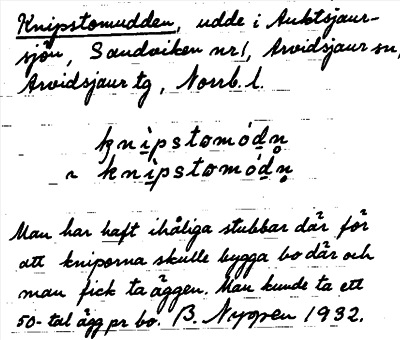 Knipstomudden, udde i Auktsjaur-
sjön, Sandviken nr 1, Arvidsjaur sn,
Arvidsjaur tg, Norrb. l.
kni̠pstomód̠n̥
~ kni̠pstomód̠n̥
Man har haft ihåliga stubbar där för
att kniporna skulle bygga bo där och
man fick ta äggen. Man kunde ta ett
50-tal ägg pr bo. B. Nygren 1932.